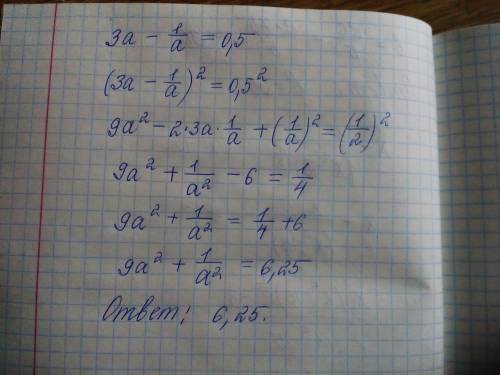 3a - 1/a = 0,5
(3a - 1/a)² = 0,5²
9a² - 2·3a·1/a + (1/a)² = (1/2)²
9a² + 1/a² - 6 = 1/4
9a² + 1/a² = 1/4 + 6
9a² + 1/a² = 6,25
Ответ: 6,25.